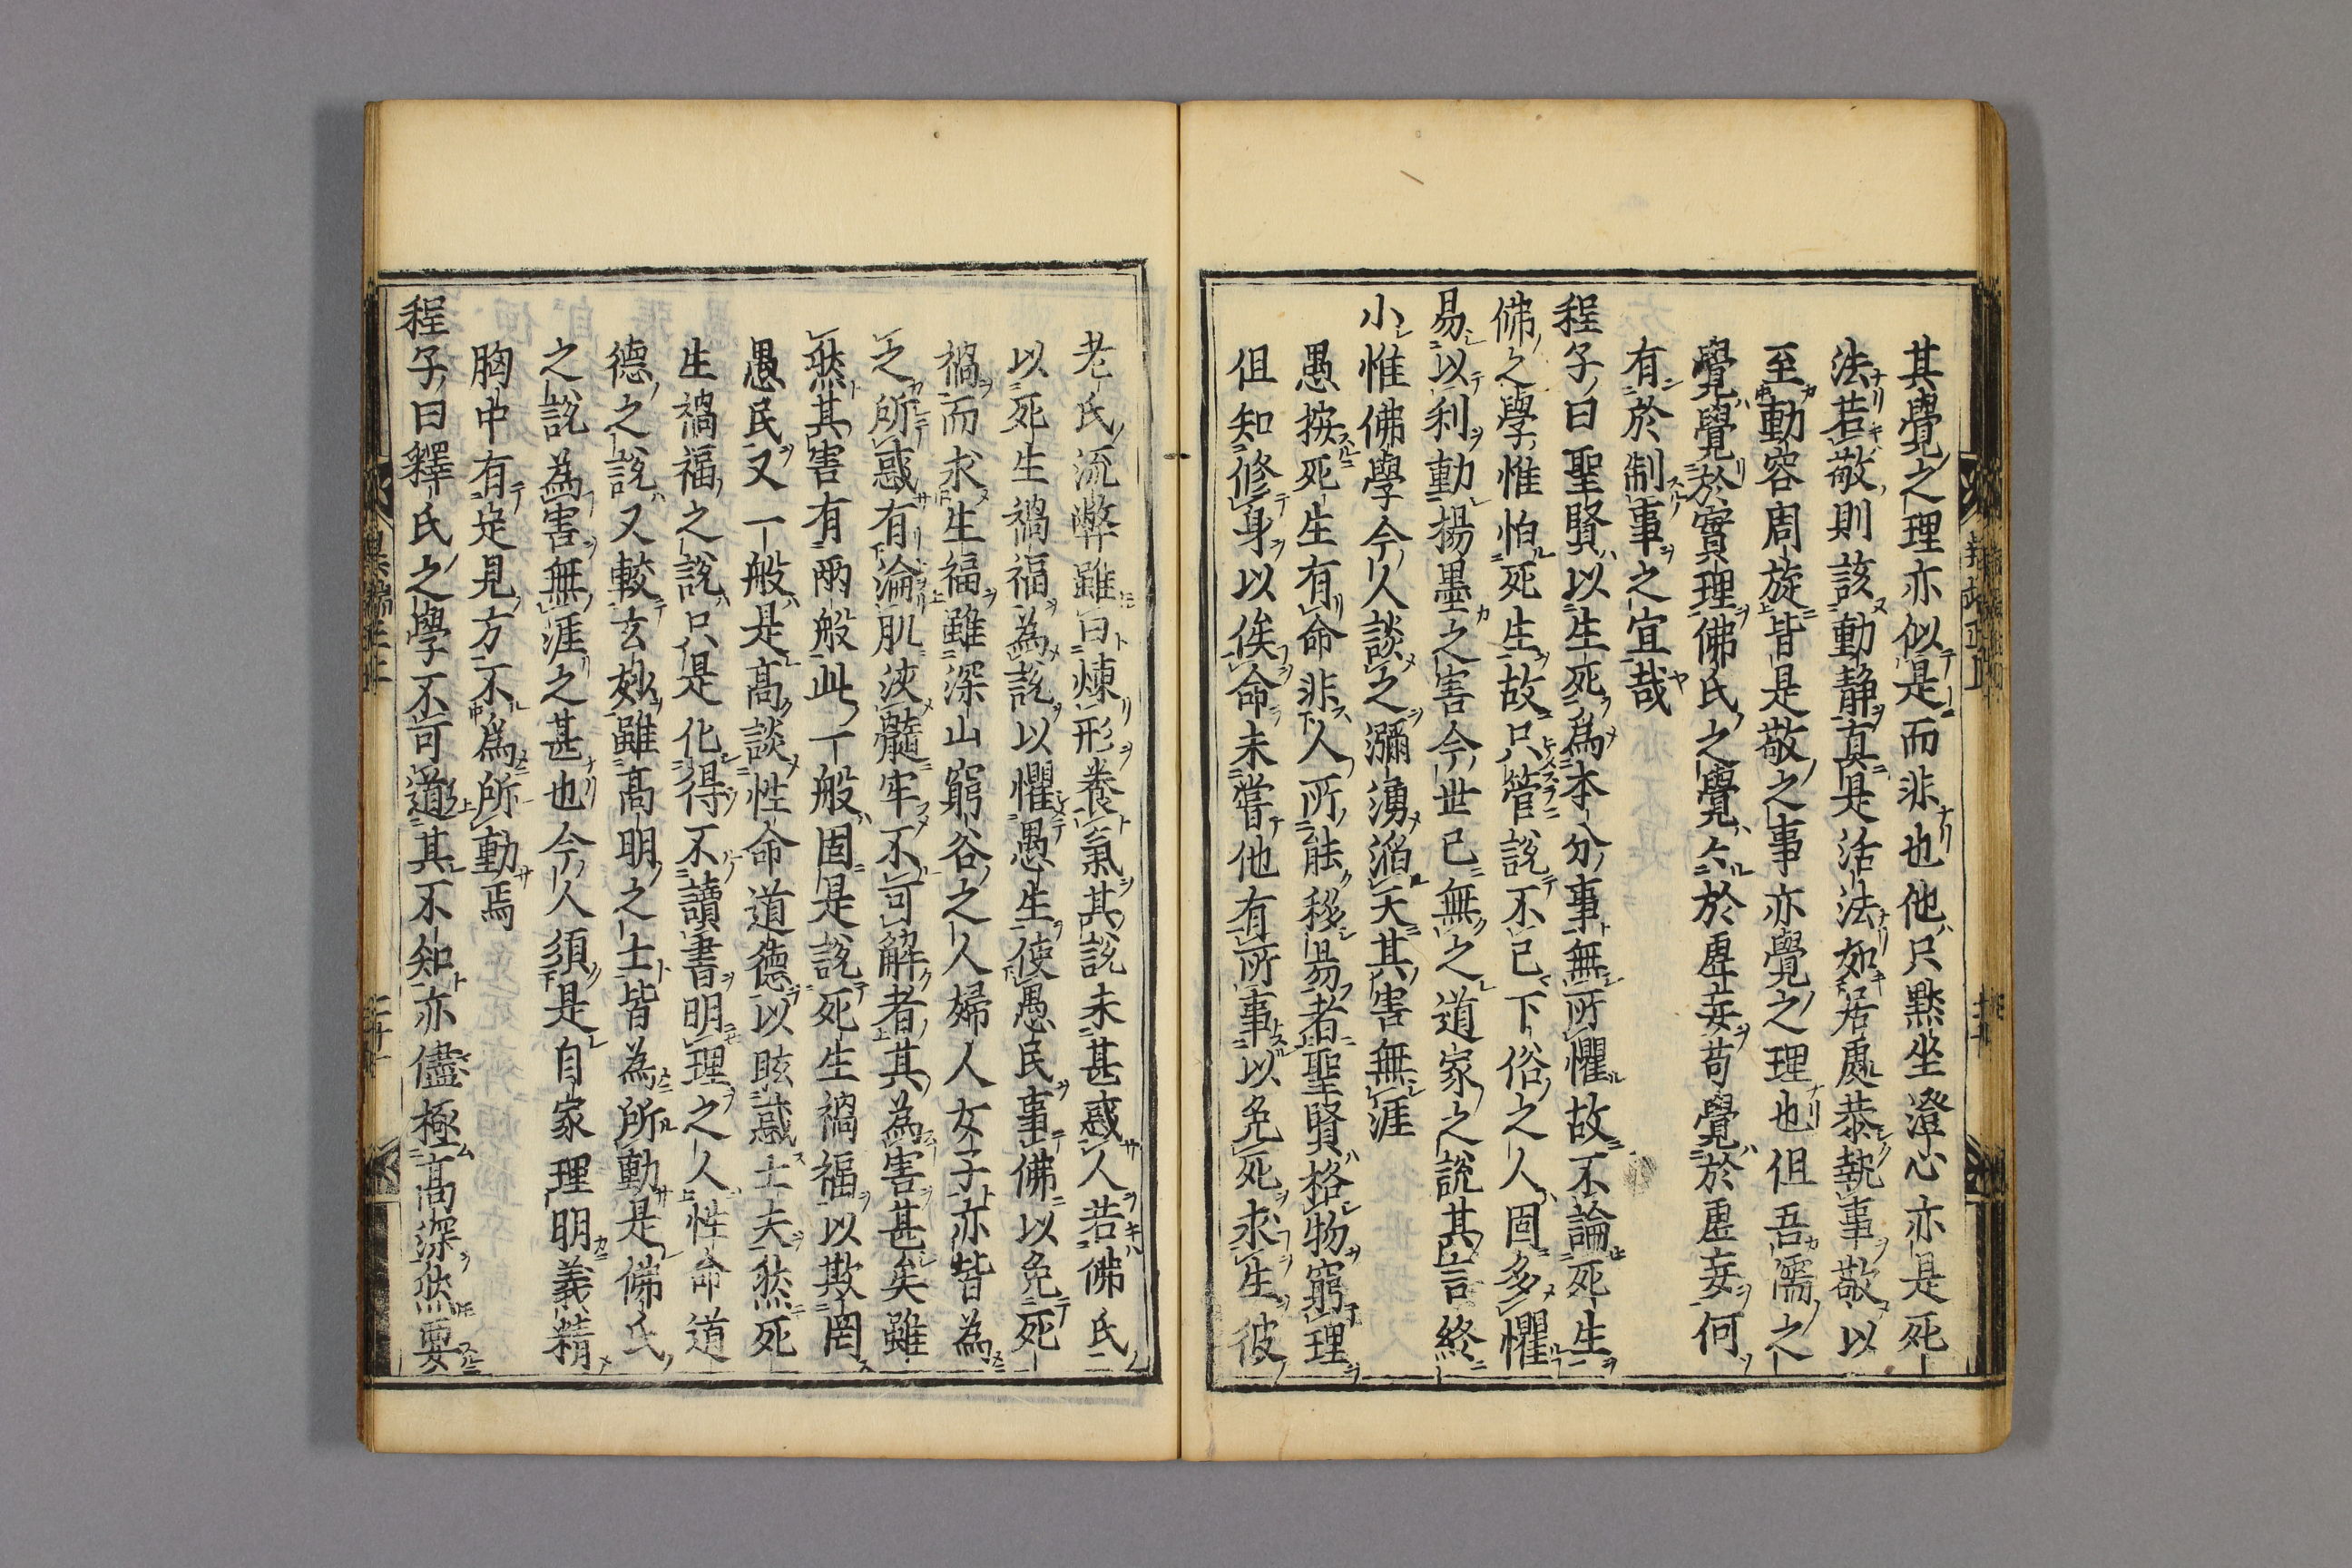 其覺之理亦似是而非也他只黙坐澄心亦是死
法若敬則該動静真是活法如居處恭執事敬以
至動容周旋皆是敬之事亦覺之理也但吾儒之
覺覺於實理佛氏之覺六於虚妄苟覺於虚妄何
有於制事之宜哉
程子曰聖賢以生死爲本分事無所懼故不論死生
佛之學惟怕死生故只管説不已下俗之人固多懼
易以利動楊墨之害今世已無之道家之說其害終
小惟佛學今人談之瀰漫滔天其害無涯
愚按死生有命非人所能移易者聖賢格物窮理
但知修身以俟命未嘗他有所事以免死求生彼
老氏流弊雖曰煉形養氣其説未甚惑人若佛氏
以死生禍福為説以懼愚生使愚民事佛以免死
禍而求生福雖深山窮谷之人婦人女子亦皆為
之所惑有淪肌浹髓牢不可解者其為害甚矣雖
然其害有兩般此一般固是説死生禍福以欺罔
愚民又一般是高談性命道德以眩惑士夫然死
生禍福之説只是化得不讀書明理之人性命道
德之説又較玄妙雖高明之士皆為所動是佛氏
之説為害無涯之甚也今人須是自家理明義精
胸中有定見方不爲所動焉
程子曰釋氏之學不可道其不知亦儘極高深然要